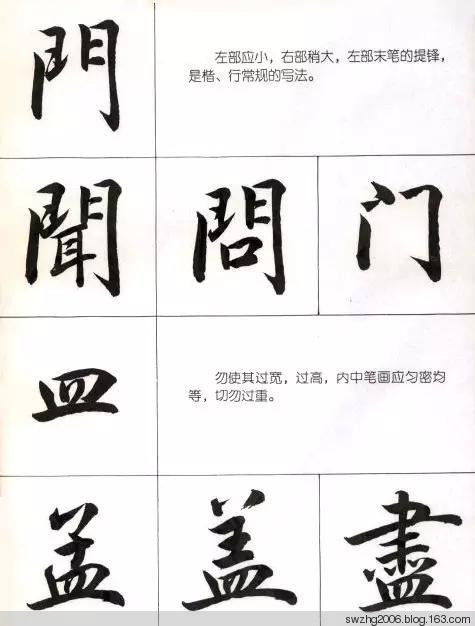 門
左部应小，右部稍大，左部末笔的提锋，
是楷、行常规的写法。
聞 問 门
皿
勿使其过宽，过高，内中笔画应匀密均
等，切勿过重。
孟 盖 盡
swzhg2006.blog.163.com